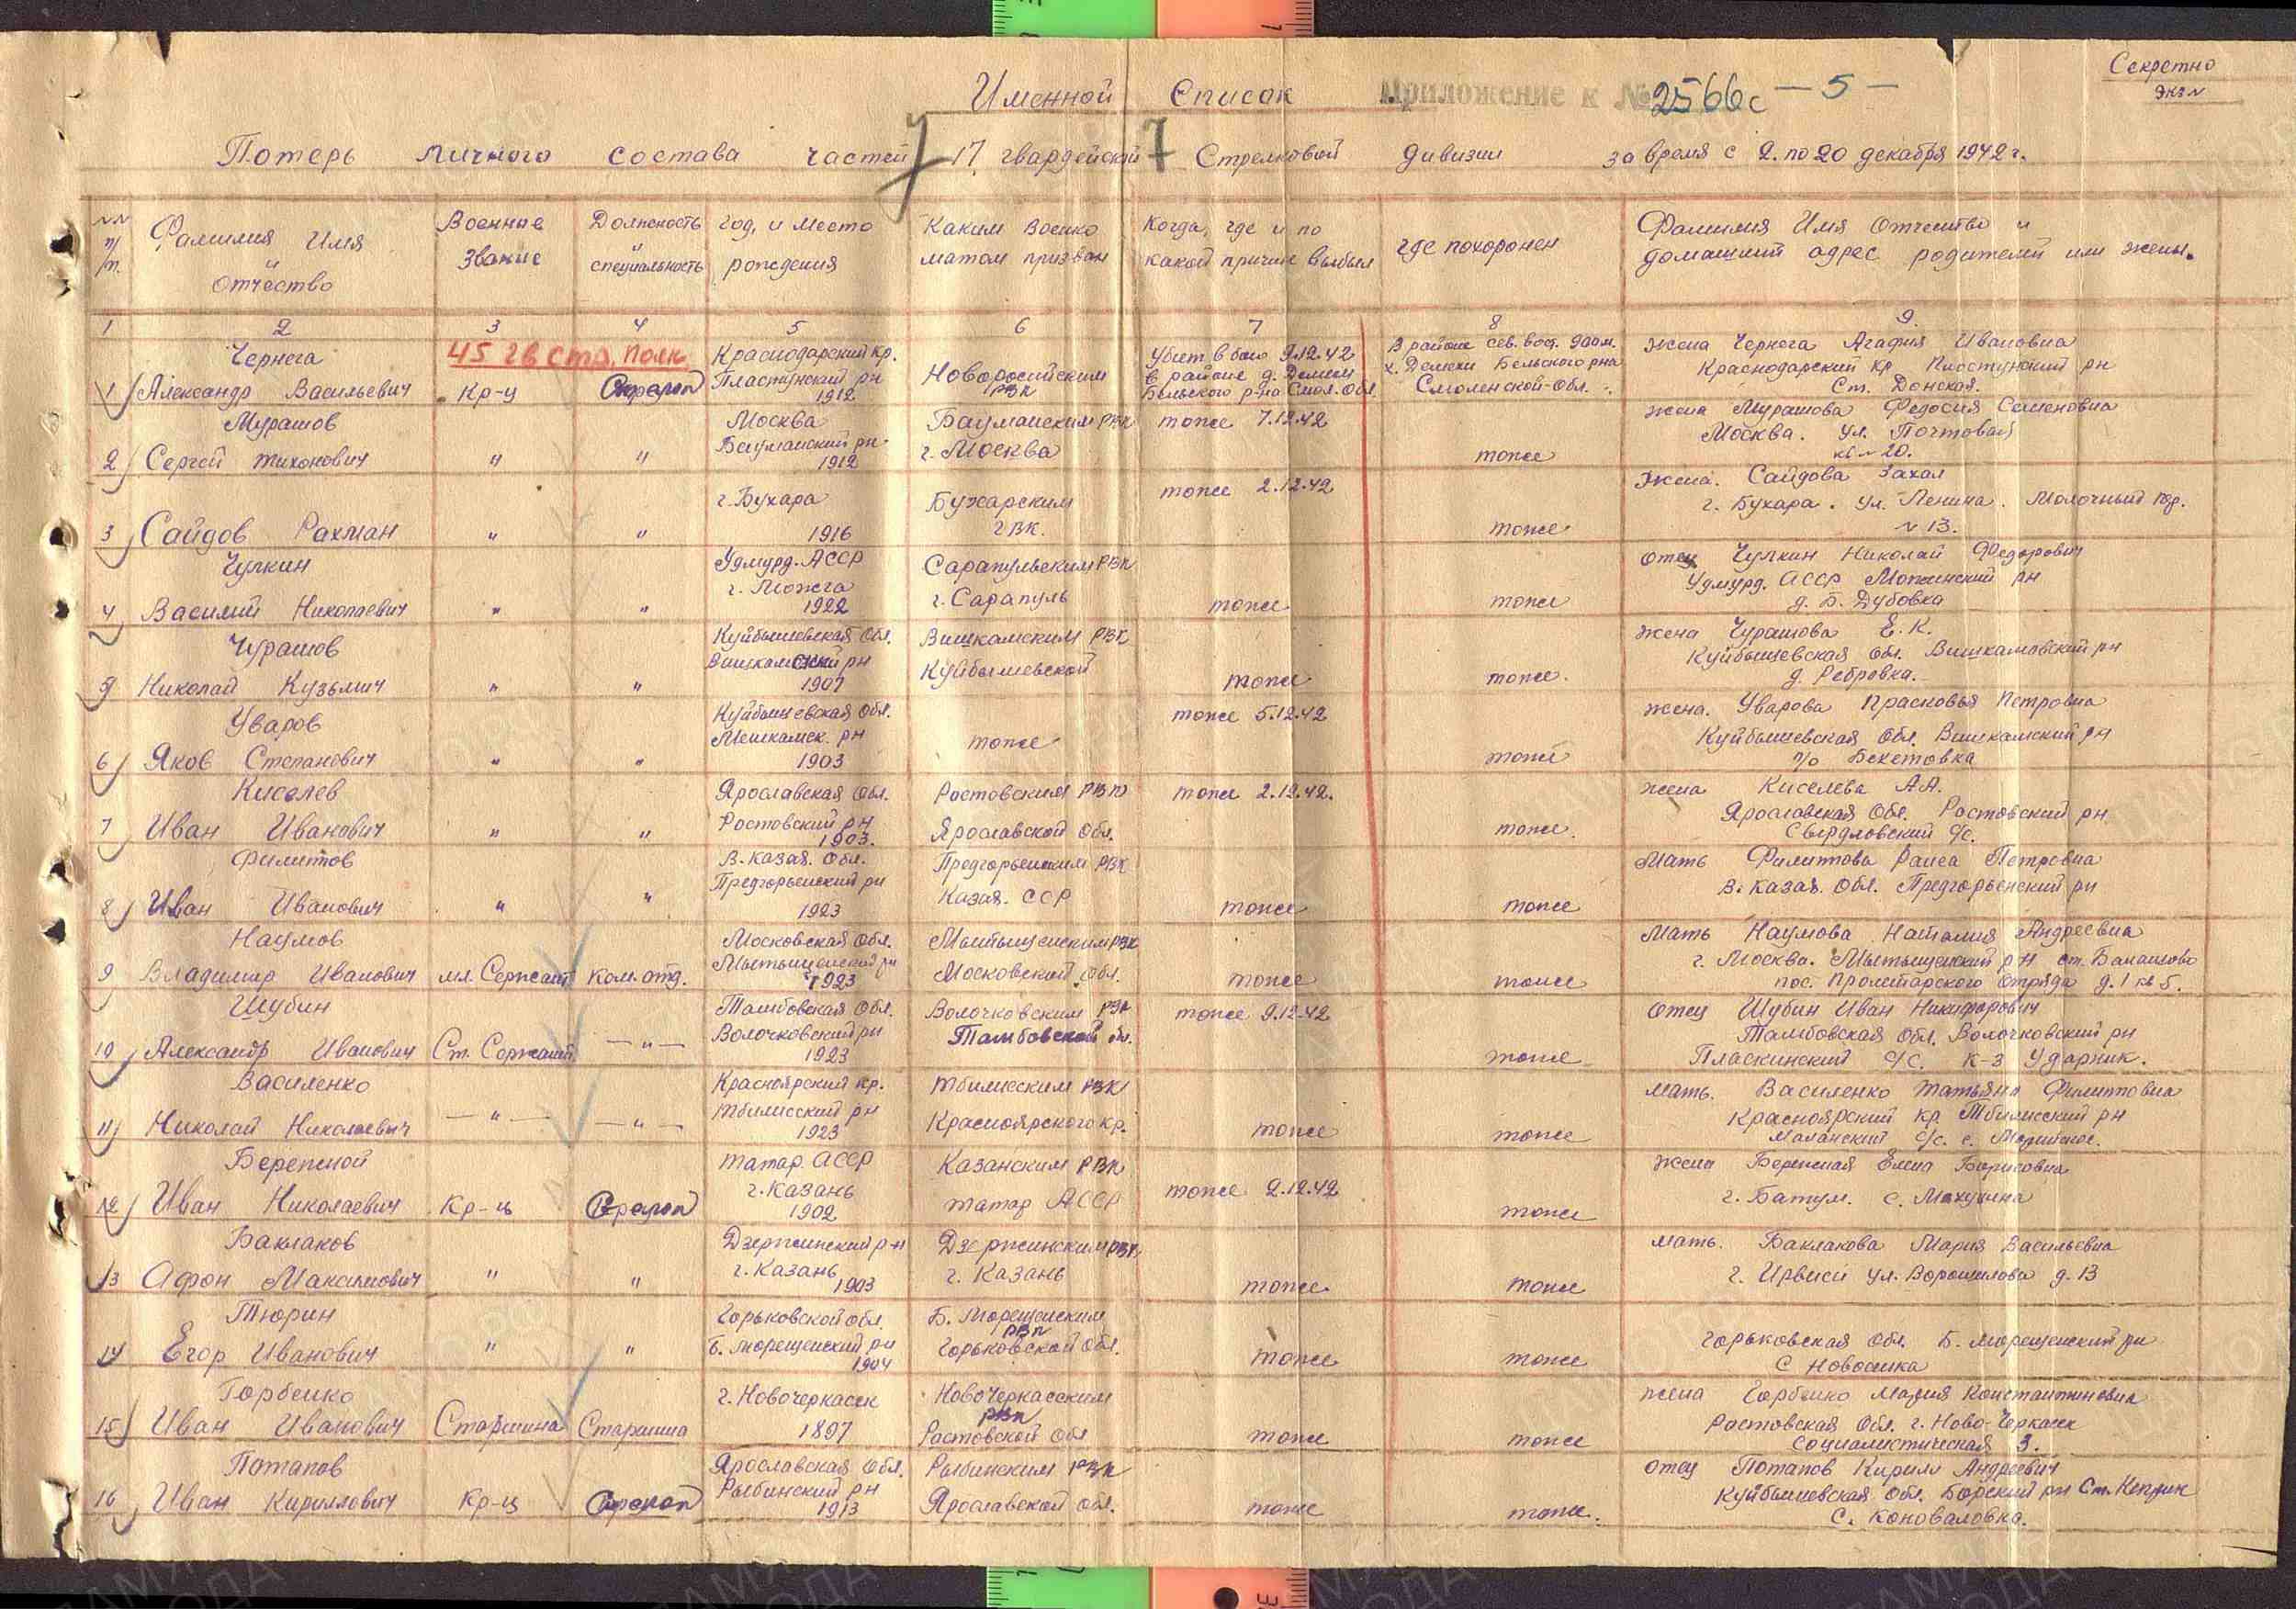 Секретно
Экз N
Именной Список Приложение к № 2566с - 5 -
Потерь личного состава частей 17 гвардейской Стрелковой дивизии за время с 2. по 20 декабря 1942 г.
NN п/п.
Фамилия Имя и отчество
Военное Звание
Должность и специальность
год, и место рождения
Каким Военкоматом призван
Когда, где и по какой причине выбыл
где похоронен
Фамилия Имя Отчество и домашний адрес родителей или жены.
1 2 3 4 5 6 7 8 9.
45 гв Стр. Полк
1 Чернега Александр Васильевич
Кр-ц
Стрелок
Краснодарский кр. Пластунский рн 1912
Новоросийским РВК
Убит в бою 9.12.42 в районе д. Демехи Бельского р-на Смол. Обл.
В районе сев. вост. 900 м. х. Демехи Бельского рна Смоленской-Обл.
Жена Чернега Агафия Ивановна
Краснодарский кр Пластунский рн
Ст. Донская.
2 Мурашов Сергей Тихонович
" "
Москва Бауманский рн. 1912
Бауманским РВК г. Москва
тоже 7.12.42
тоже
жена Мурашова Федосия Семеновна
Москва. Ул. Почтовая
кв N 20.
3 Сайдов Рахман
" "
г. Бухара 1916
Бухарским ГВК.
тоже 2.12.42
тоже
Жена. Сайдова Захал
г. Бухара. Ул. Ленина. Молочный пер.
N 13.
4 Чулкин Василий Николаевич
" "
Удмурд. АССР г. Можга 1922
Сарапульским РВК г. Сарапуль
тоже
тоже
отец Чулкин Николай Федорович
Удмурд. АССР Можинский рн
д. Б. Дубовка
5 Чурашов Николай Кузьмич
" "
Куйбышевская Обл. Вишкамский рн 1907
Вишкамским РВК Куйбышевской
тоже
тоже.
жена Чурашова Е. К.
Куйбышевская Обл. Вишкамовский рн
д. Ребровка.
6 Уваров Яков Степанович
" "
Куйбышевская Обл. Мешкамск. рн 1903
тоже
тоже 5.12.42
тоже
жена. Уварова Прасковья Петровна
Куйбышевская Обл. Вишкамский рн
п/о Бекетовка
7 Киселев Иван Иванович
" "
Ярославская Обл. Ростовский рн 1903.
Ростовским РВК Ярославской Обл.
тоже 2.12.42.
тоже.
жена Киселева А А.
Ярославская Обл. Ростовский рн
Свердловский с/с.
8 Филитов Иван Иванович
" "
В. Казах. Обл. Предгорьенский рн 1923
Предгорьенским РВК Казах. ССР
тоже
тоже
Мать Филитова Раиса Петровна
В. Казах. Обл. Предгорьенский рн
9 Наумов Владимир Иванович
мл. Сержант
ком. отд.
Московская Обл. Мытыщенский рн 1923
Мытыщенским РВК Московский Обл.
тоже
тоже
Мать Наумова Наталия Андреевна
г. Москва. Мытыщенский р-н
пос. Пролетарского Отряда д. 1 кв 5.
10 Шубин Александр Иванович
Ст. Сержант
— " —
Тамбовская Обл. Волочковский рн 1923
Волочковским РВК Тамбовской обл.
тоже 9.12.42
тоже
отец Шубин Иван Никифорович
Тамбовская Обл. Волочковский рн
Пласкинский с/с. к-з Ударник.
11 Василенко Николай Николаевич
— " — — " —
Красноярский кр. Тбилисский рн 1923
Тбилисским РВК Красноярского кр.
тоже
тоже
мать. Василенко Татьяна Филитовна
Красноярский кр Тбилисский рн
с/с. с. Марийное.
12 Бережной Иван Николаевич
Кр-ц
Стрелок
Татар. АССР г. Казань 1902
Казанским РВК Татар АССР
тоже 2.12.42
тоже
жена Бережная Елена Борисовна
г. Батум. с. Махунина
13 Баклаков Афон Максимович
" "
Дзержинский р-н г. Казань 1903
Дзержинским РВК г. Казань
тоже.
тоже
мать. Баклакова Мария Васильевна
г. Ирвиси ул. Ворошилова д. 13
14 Тюрин Егор Иванович
" "
Горьковской обл. Б. Морещенский рн 1904
Б. Морещенским РВК Горьковской Обл.
тоже
тоже
Горьковская Обл. Б. Морещенский рн
С Новоселка
15 Горбенко Иван Иванович
Старшина
Старшина
г. Новочеркасск 1897
Новочеркасским РВК Ростовской Обл
тоже
тоже
жена Горбенко Мария Константиновна
Ростовская Обл. г. Ново-Черкасск
Социалистическая 3.
16 Потапов Иван Кириллович
Кр-ц
Стрелок
Ярославская Обл. Рыбинский рн 1913
Рыбинским РВК Ярославской Обл.
тоже
тоже.
отец Потапов Кирил Андреевич
Куйбышевская Обл. Борский рн
С. Коноваловка.